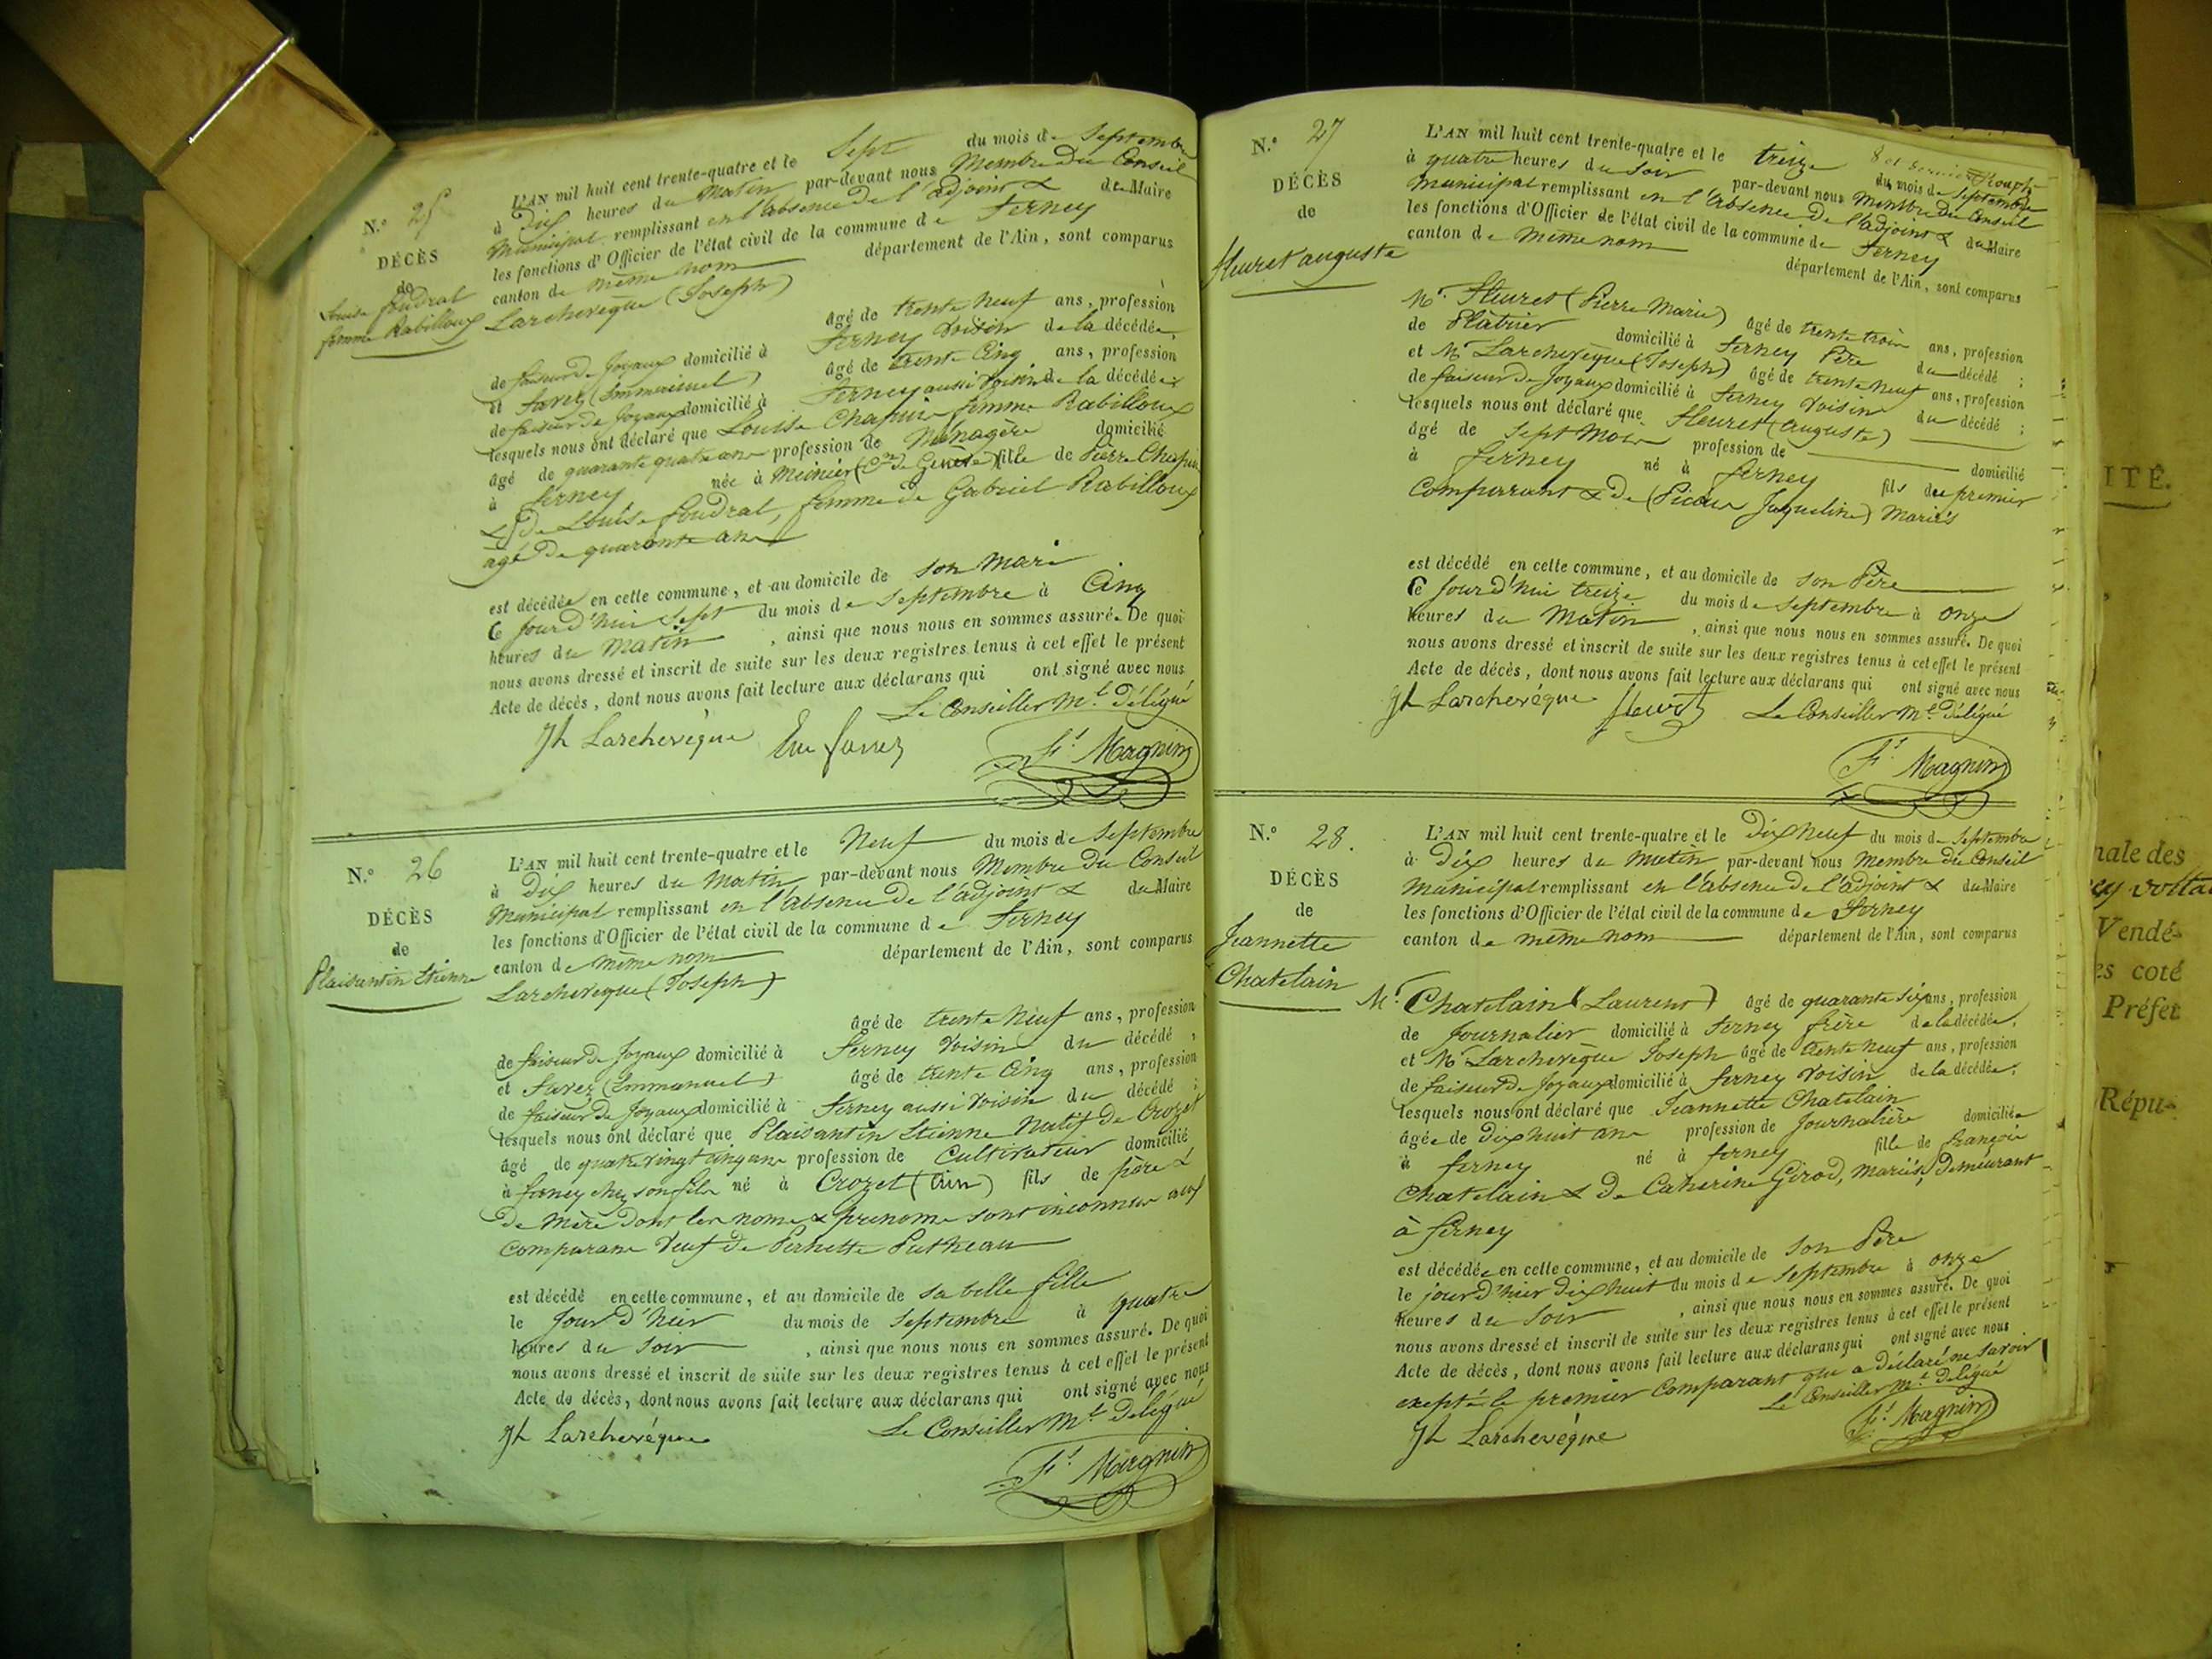 N.° 25
DÉCÈS
de
Louise Foudral
femme Rabilloux
L'AN mil huit cent trente-quatre et le Sept du mois de Septembre
à Dix heures du Matin par-devant nous Membre du Conseil
Municipal remplissant en l'absence de l'adjoint & du Maire
les fonctions d'Officier de l'état civil de la commune de Ferney
canton de même nom département de l'Ain, sont comparus
Larchevêque (Joseph)
âgé de trente neuf ans, profession
de faiseur de Joyaux domicilié à Ferney Voisin de la décédée,
et Favez (Emmanuel) âgé de trente Cinq ans, profession
de faiseur de Joyaux domicilié à Ferney aussi Voisin de la décédée
lesquels nous ont déclaré que Louise Chapuis femme Rabilloux
âgé de quarante quatre ans profession de Ménagère domicilié
à Ferney née à Meinier (Con de Genève) fille de Pierre Chapuis
& de Louise Foudral, femme de Gabriel Rabilloux
âgé de quarante ans
est décédée en cette commune, et au domicile de son Mari
Ce Jourd'hui Sept du mois de Septembre à Cinq
heures du Matin, ainsi que nous nous en sommes assuré. De quoi
nous avons dressé et inscrit de suite sur les deux registres tenus à cet effet le présent
Acte de décès, dont nous avons fait lecture aux déclarans qui ont signé avec nous
Le Conseiller Mal Délégué
Jh Larchevêque Em Favez Fs Magnin
N.° 26
DÉCÈS
de
Plaisantin Etienne
L'AN mil huit cent trente-quatre et le Neuf du mois de Septembre
à Dix heures du Matin par-devant nous Membre du Conseil
Municipal remplissant en l'absence de l'adjoint & du Maire
les fonctions d'Officier de l'état civil de la commune de Ferney
canton de même nom département de l'Ain, sont comparus
Larchevêque (Joseph)
âgé de trente Neuf ans, profession
de faiseur de Joyaux domicilié à Ferney Voisin du décédé,
et Favez (Emmanuel) âgé de trente Cinq ans, profession
de faiseur de Joyaux domicilié à Ferney aussi Voisin du décédé;
lesquels nous ont déclaré que Plaisantin Etienne Natif de Crozet
âgé de quatre vingt cinq ans profession de Cultivateur domicilié
à ferney chez son fils né à Crozet (Ain) fils de père &
de mère dont les noms & prenoms sont inconnus aux
comparans Veuf de Pernette
est décédé en cette commune, et au domicile de sa belle fille
le Jour d'hier du mois de Septembre à quatre
heures du Soir, ainsi que nous nous en sommes assuré. De quoi
nous avons dressé et inscrit de suite sur les deux registres tenus à cet effet le présent
Acte de décès, dont nous avons fait lecture aux déclarans qui ont signé avec nous
Jh Larchevêque Le Conseiller Mal Délégué
Fs Magnin
8 et dernier
N.° 27
DÉCÈS
de
fleuret auguste
L'AN mil huit cent trente-quatre et le treize du mois de Septembre
à quatre heures du Soir par-devant nous Membre du Conseil
Municipal remplissant en l'absence de l'adjoint & du Maire
les fonctions d'Officier de l'état civil de la commune de Ferney
canton de même nom département de l'Ain, sont comparus
Mr. Fleuret (Pierre Marie) âgé de trente trois ans, profession
de Plâtrier domicilié à Ferney Père du décédé;
et Mr Larchevêque (Joseph) âgé de trente Neuf ans, profession
de faiseur de Joyaux domicilié à Ferney Voisin du décédé;
lesquels nous ont déclaré que Fleuret (Auguste)
âgé de Sept Mois profession de domicilié
à Ferney né à Ferney fils du premier
Comparrant & De (Jaqueline) Mariés
est décédé en cette commune, et au domicile de son Père
Ce Jourd'hui treize du mois de Septembre à onze
heures du Matin, ainsi que nous nous en sommes assuré. De quoi
nous avons dressé et inscrit de suite sur les deux registres tenus à cet effet le présent
Acte de décès, dont nous avons fait lecture aux déclarans qui ont signé avec nous
Jh Larchevêque fleuret Le Conseiller Mal Délégué
Fs Magnin
N.° 28.
DÉCÈS
de
Jeannette
Chatelain
L'AN mil huit cent trente-quatre et le Dix Neuf du mois de Septembre
à Dix heures du Matin par-devant nous Membre du Conseil
Municipal remplissant en l'absence de l'adjoint & du Maire
les fonctions d'Officier de l'état civil de la commune de Ferney
canton de même nom département de l'Ain, sont comparus
Mr. Chatelain (Laurent) âgé de quarante Six ans, profession
de Journalier domicilié à Ferney frère de la décédée,
et Mr Larchevêque Joseph âgé de trente Neuf ans, profession
de faiseur de Joyaux domicilié à Ferney Voisin de la décédée,
lesquels nous ont déclaré que Jeannette Chatelain
âgée de Dix huit ans profession de Journalière domiciliée
à Ferney né à Ferney fille de François
Chatelain & De Caterine Girod, Mariés, Demeurant
à Ferney
est décédée en cette commune, et au domicile de son Père
le jour d'hier Dix huit du mois de Septembre à onze
heures du Soir, ainsi que nous nous en sommes assuré. De quoi
nous avons dressé et inscrit de suite sur les deux registres tenus à cet effet le présent
Acte de décès, dont nous avons fait lecture aux déclarans qui ont signé avec nous
excepté le premier Comparant qui a déclaré ne savoir
Le Conseiller Mal Délégué
Jh Larchevêque Fs Magnin
ITÉ.
nale des
Vendé-
es coté
Préfet
Répu-